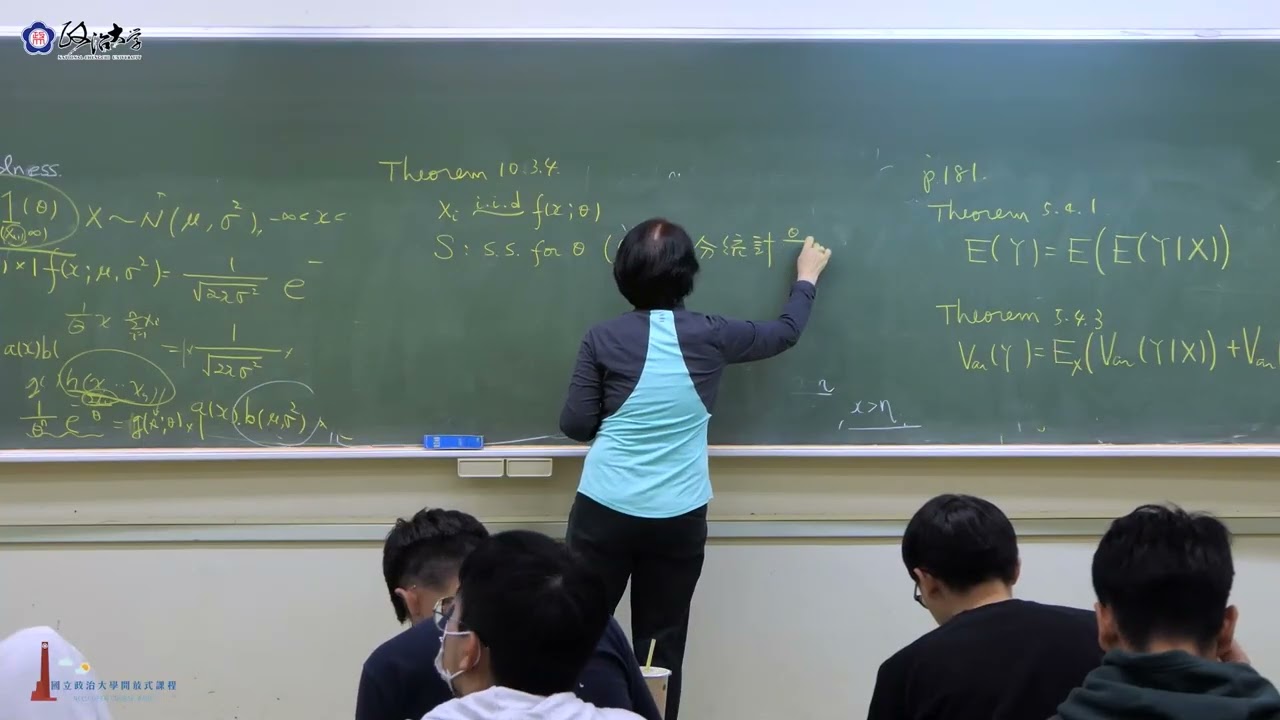 政治大學
NATIONAL CHENGCHI UNIVERSITY
dness.
1(θ)
(X(1),∞)
X ~ N(μ, σ²), -∞<x<
f(x;μ,σ²)= 1/√2πσ² e^-
1/θ x Σxi
= 1/√2πσ²
a(x)b(
1/θⁿ e^- = g( ;θ) × a(x).b(μ,σ²)
Theorem 10.3.4.
Xi i.i.d f(x;θ)
S: s.s. for θ ( 分統計
θ
x>η
p181.
Theorem 5.4.1
E(Y)=E(E(Y|X))
Theorem 5.4.3
Var(Y)=Ex(Var(Y|X))+Var
國立政治大學開放式課程